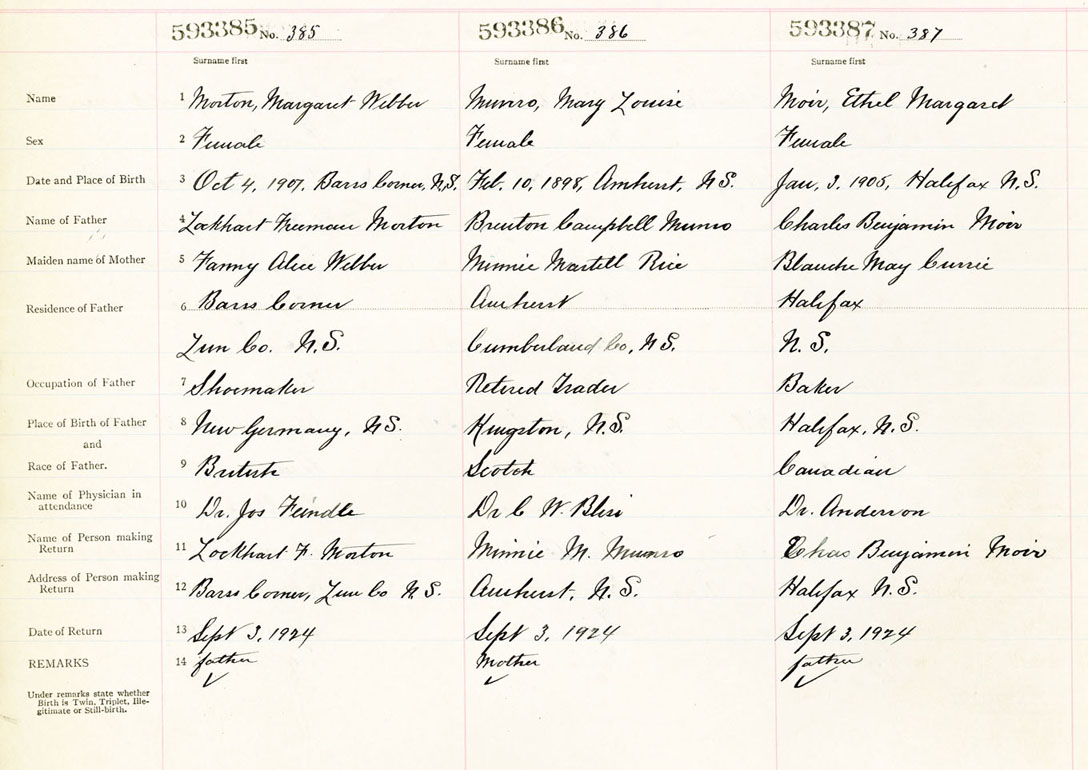 593385 No. 385 593386 No. 386 593387 No. 387
Surname first Surname first Surname first
Name 1 Morton, Margaret Webber Munro, Mary Louise Moir, Ethel Margaret
Sex 2 Female Female Female
Date and Place of Birth 3 Oct 4, 1907, Barss Corner, N.S. Feb. 10, 1898, Amherst, N.S. Jan. 3. 1905, Halifax N.S.
Name of Father 4 Lockhart Freeman Morton Brenton Campbell Munro Charles Benjamin Moir
Maiden name of Mother 5 Fanny Alice Webber Minnie Martell Rice Blanche May Currie
Residence of Father 6 Barss Corner Amherst Halifax
Lun Co. N.S. Cumberland Co, N.S. N.S.
Occupation of Father 7 Shoemaker Retired Trader Baker
Place of Birth of Father 8 New Germany, N.S. Kingston, N.S. Halifax, N.S.
and
Race of Father. 9 British Scotch Canadian
Name of Physician in
attendance 10 Dr. Jos Feindle Dr C W. Dr. Anderson
Name of Person making
Return 11 Lockhart F. Morton Minnie M. Munro Chas Benjamin Moir
Address of Person making
Return 12 Barss Corner, Lun Co N.S. Amherst, N.S. Halifax N.S.
Date of Return 13 Sept 3, 1924 Sept 3, 1924 Sept 3, 1924
REMARKS 14 father Mother father
Under remarks state whether
Birth is Twin, Triplet, Ille-
gitimate or Still-birth.